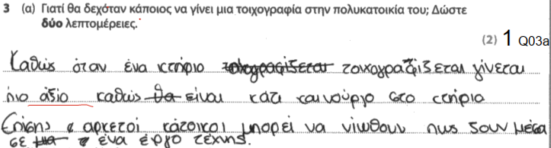 3 (α) Γιατί θα δεχόταν κάποιος να γίνει μια τοιχογραφία στην πολυκατοικία του; Δώστε
δύο λεπτομέρειες.
(2) 1 Q03a
Καθώς όταν ένα κτήριο τοιχογραφίζεται γίνεται
πιο άξιο καθώς θα είναι κάτι καινούργο στο κτήριο
Επίσης αρκετοί κάτοικοι μπορεί να νίωθουν πως ζουν μέσα
σε μια ένα έργο τέχνης.